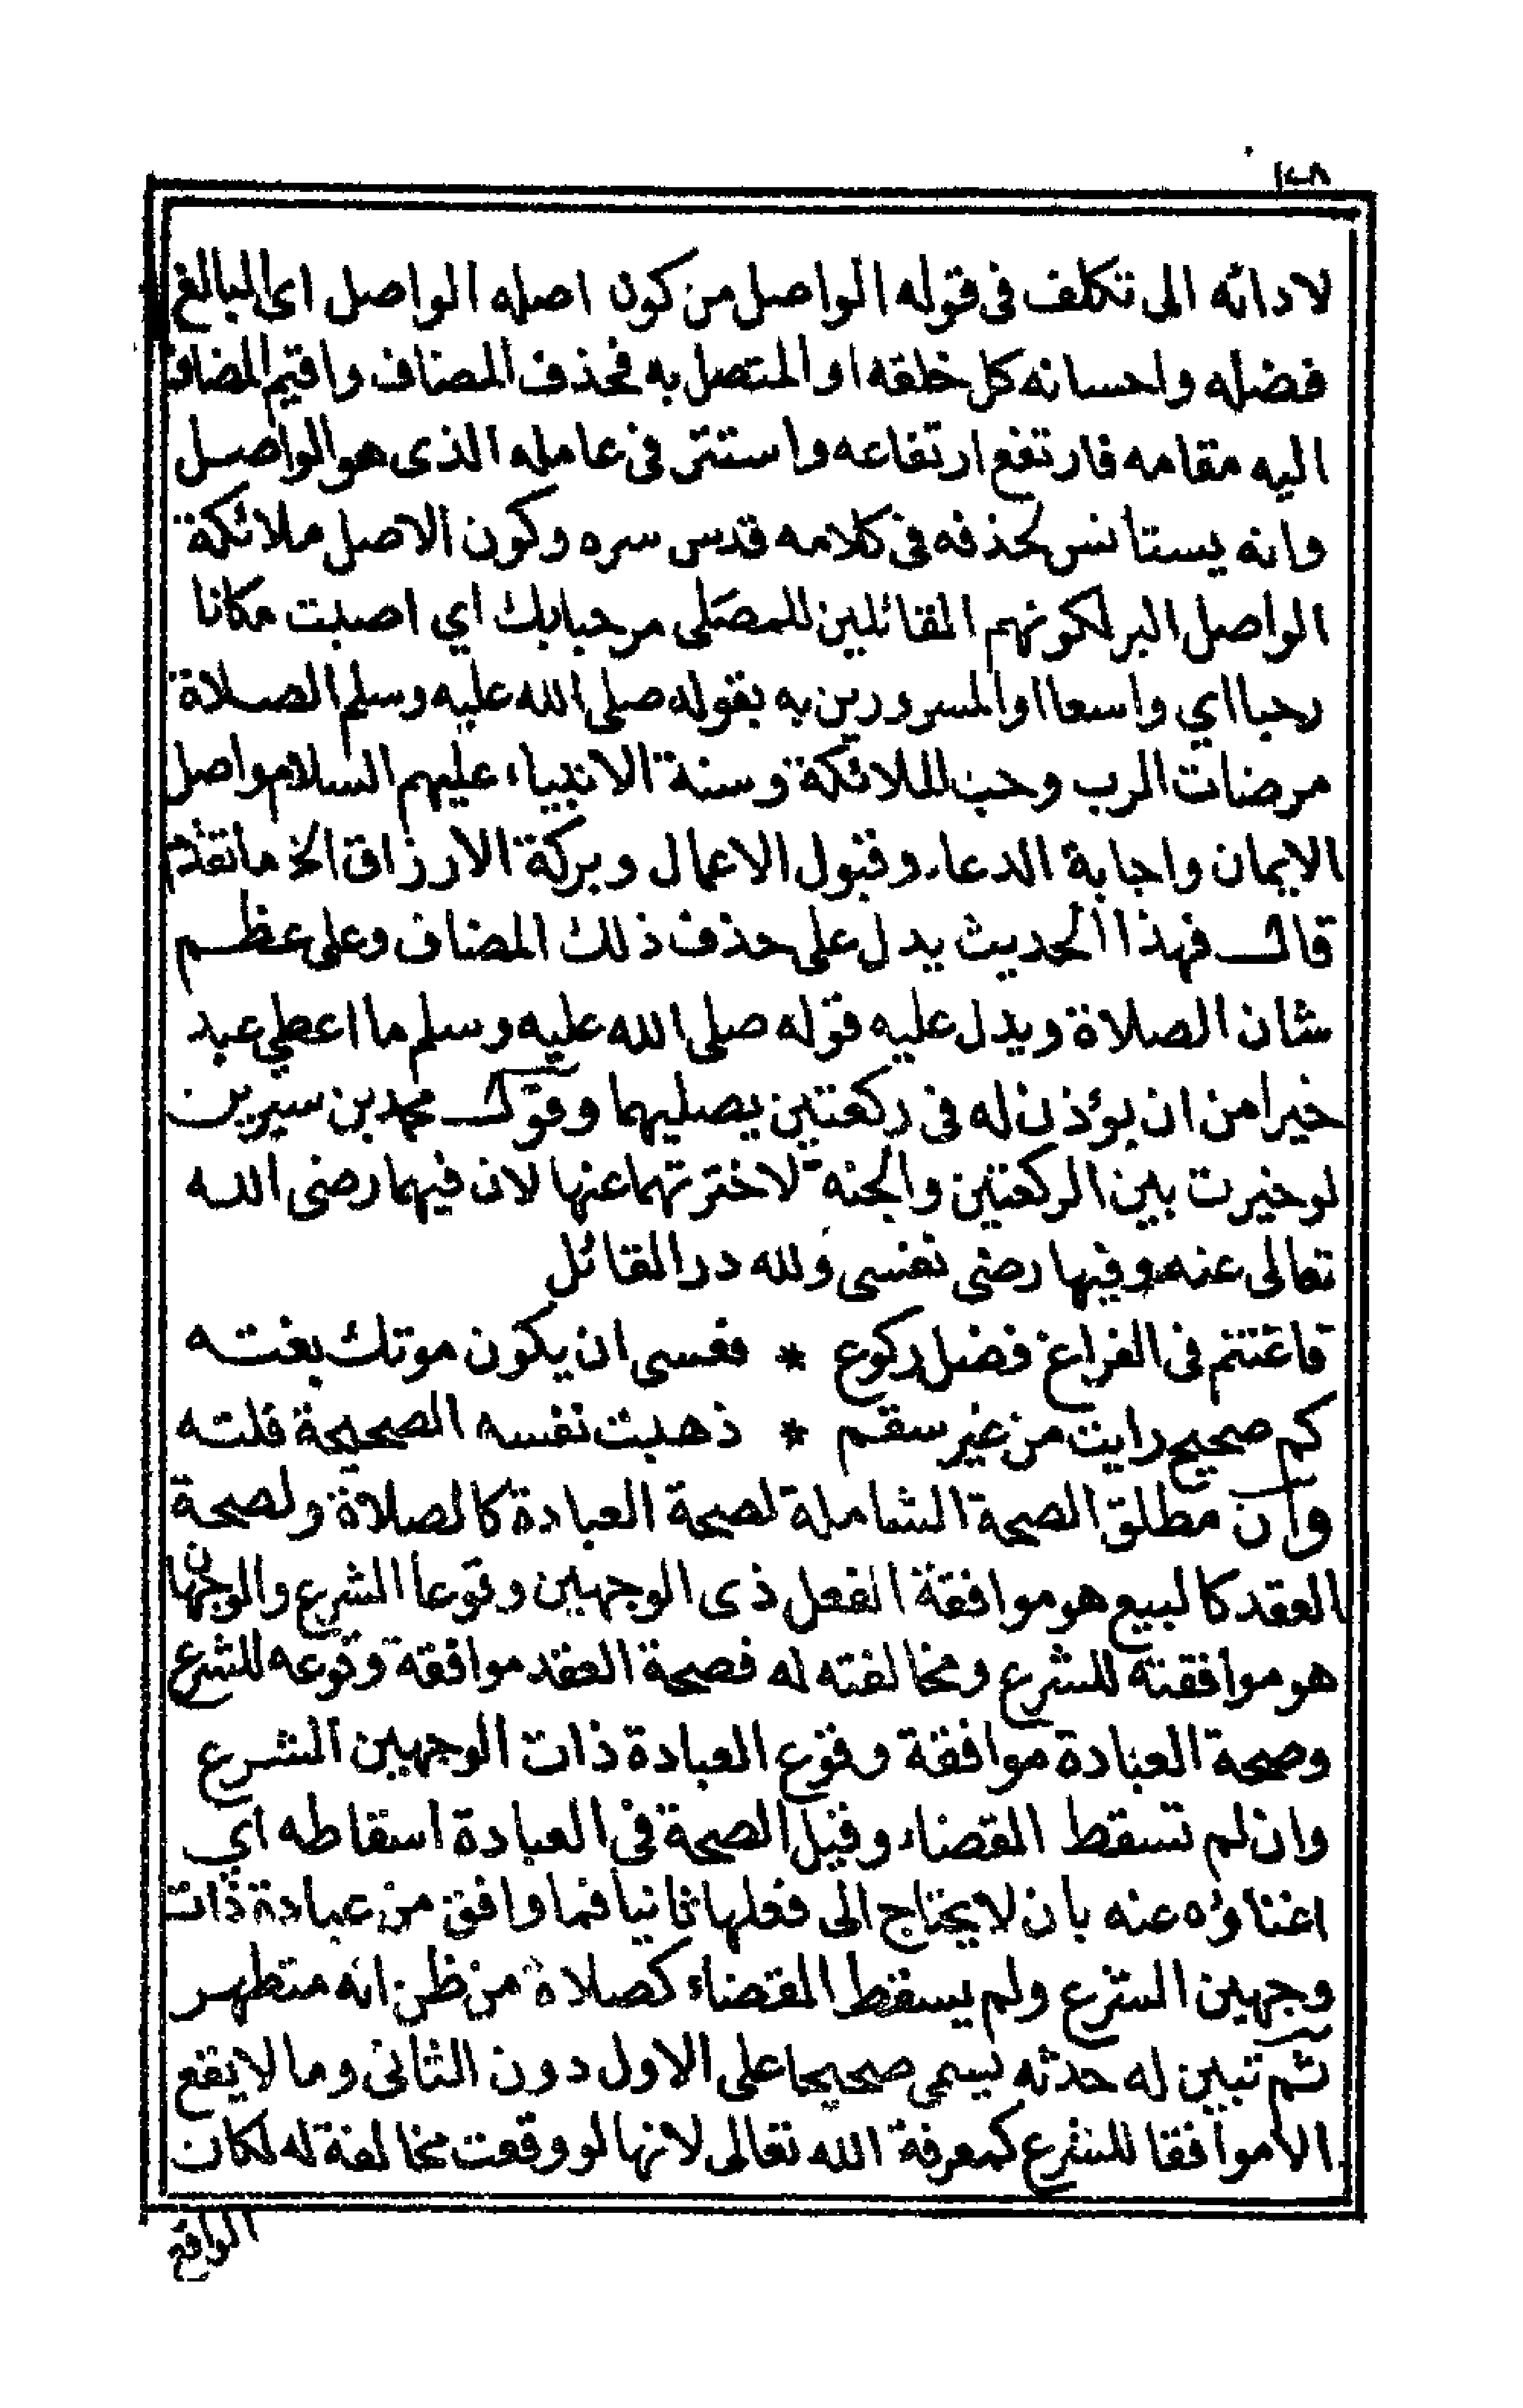 ١٤٨
لادائه الى تكلف فى قوله الواصل من كون اصله الواصل اى البالغ
فضله واحسانه كل خلقه او المتصل به فحذف المضاف واقيم المضاف
اليه مقامه فارتفع ارتفاعه واستتر فى عامله الذى هو الواصل
وانه يستانس لحذفه فى كلامه قدس سره وكون الاصل ملائكة
الواصل البر لكونهم القائلين للمصلى مرحبا بك اي اصبت مكانا
رحبا اي واسعا او المسرورين به بقوله صلى الله عليه وسلم الصلاة
مرضات الرب وحب الملائكة وسنة الانبياء عليهم السلام واصل
الايمان واجابة الدعاء وقبول الاعمال وبركة الارزاق الخ ما تقدم
قال فهذا الحديث يدل على حذف ذلك المضاف وعلى عظم
شان الصلاة ويدل عليه قوله صلى الله عليه وسلم ما اعطي عبد
خيرا من ان يؤذن له فى ركعتين يصليهما وقول محمد بن سيرين
لو خيرت بين الركعتين والجنة لاخترتهما عنها لان فيهما رضى الله
تعالى عنه وفيها رضى نفسى ولله در القائل
فاغتنم فى الفراغ فضل ركوع * فعسى ان يكون موتك بغته
كم صحيح رايت من غير سقم * ذهبت نفسه الصحيحة فلته
وان مطلق الصحة الشاملة لصحة العبادة كالصلاة ولصحة
العقد كالبيع هو موافقة الفعل ذى الوجهين وقوعا الشرع والوجهان
هو موافقته للشرع ومخالفته له فصحة العقد موافقة وقوعه للشرع
وصحة العبادة موافقة وقوع العبادة ذات الوجهين الشرع
وان لم تسقط القضاء وقيل الصحة فى العبادة اسقاطه اي
اغناؤه عنه بان لا يحتاج الى فعلها ثانيا فما وافق من عبادة ذات
وجهين الشرع ولم يسقط القضاء كصلاة من ظن انه متطهر
ثم تبين له حدثه يسمى صحيحا على الاول دون الثانى وما لا يقع
الا موافقا للشرع كمعرفة الله تعالى لانها لو وقعت مخالفة له لكان
الواقع